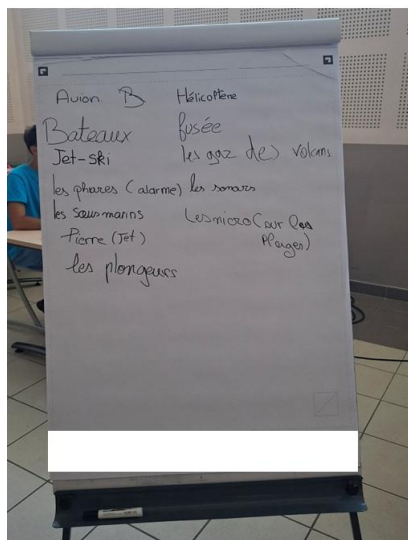 Avion B Hélicoptère
Bateaux fusée
Jet-ski les gaz des volcans
les phares (alarme) les sonars
les sous marins Les micro (sur les plages)
Pierre (Jet)
les plongeurs